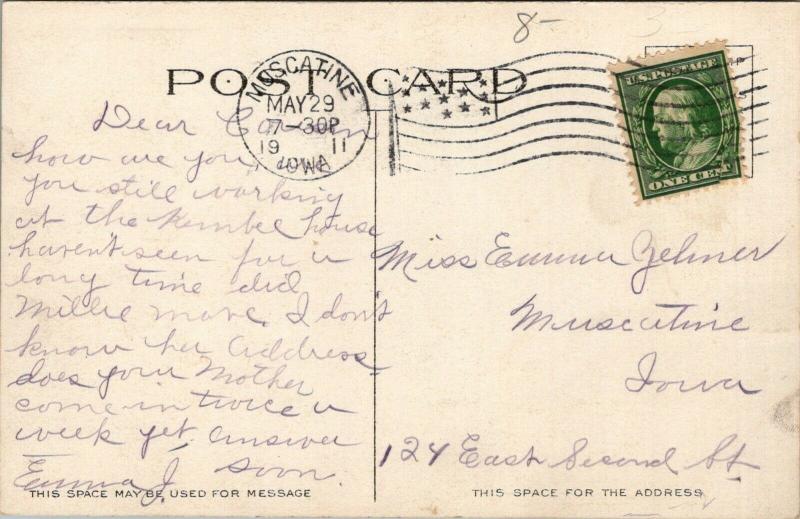 8-
POST CARD
MUSCATINE
MAY 29
7-30P
19 11
IOWA
U.S. POSTAGE
ONE CENT
Dear
how are you,
you still working
at the house
haven't seen for a
long time did
Millie move. I don't
know her address
does your Mother
come in twice a
week yet. answer
soon.
Emma J.
Miss Emma Zehner
Muscatine
Iowa
124 East Second St.
THIS SPACE MAY BE USED FOR MESSAGE
THIS SPACE FOR THE ADDRESS